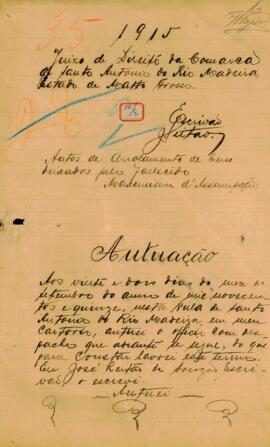 1915
Juizo de Direito da Comarca
de Santo Antonio do Rio Madeira
Estado de Matto Grosso.
Escrivão
Autos de Arolamento de bens
deixados pelo fallecido
d'Assumpção
Autuação
Aos vinte e dois dias do mez de
Setembro do anno de mil novecen
tos e quinze, nesta Villa de Santo
Antonio do Rio Madeira, em meu
Cartorio, autuei o officio com des
pacho que adiante se segue, do que
para constar lavrei este termo.
Eu José de Souza, Escri
vão o escrevi.
Autuei